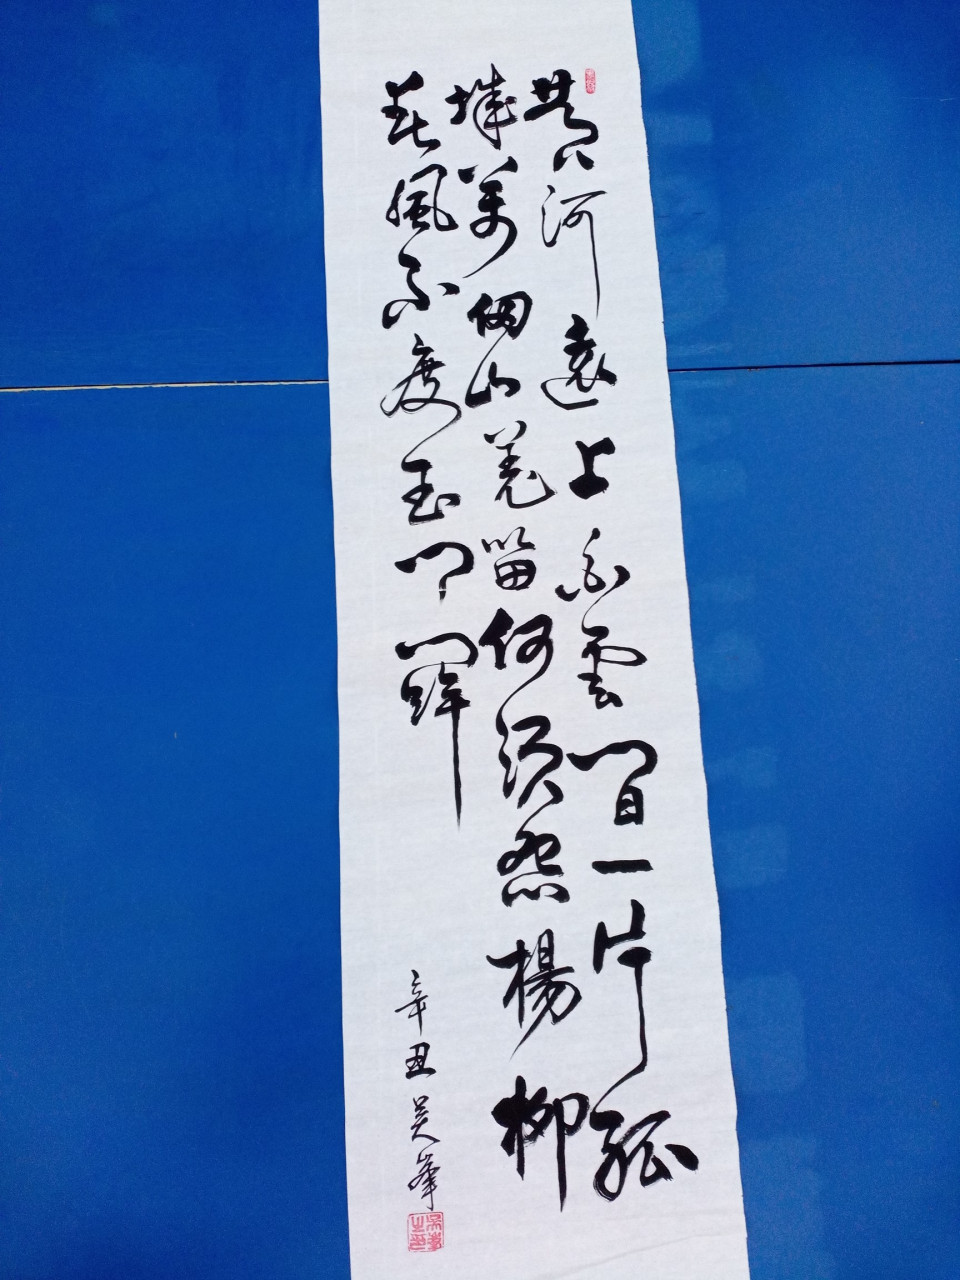 黄河遠上白雲間一片孤
城萬仞山羌笛何須怨楊柳
春風不度玉門關
辛丑吴峯